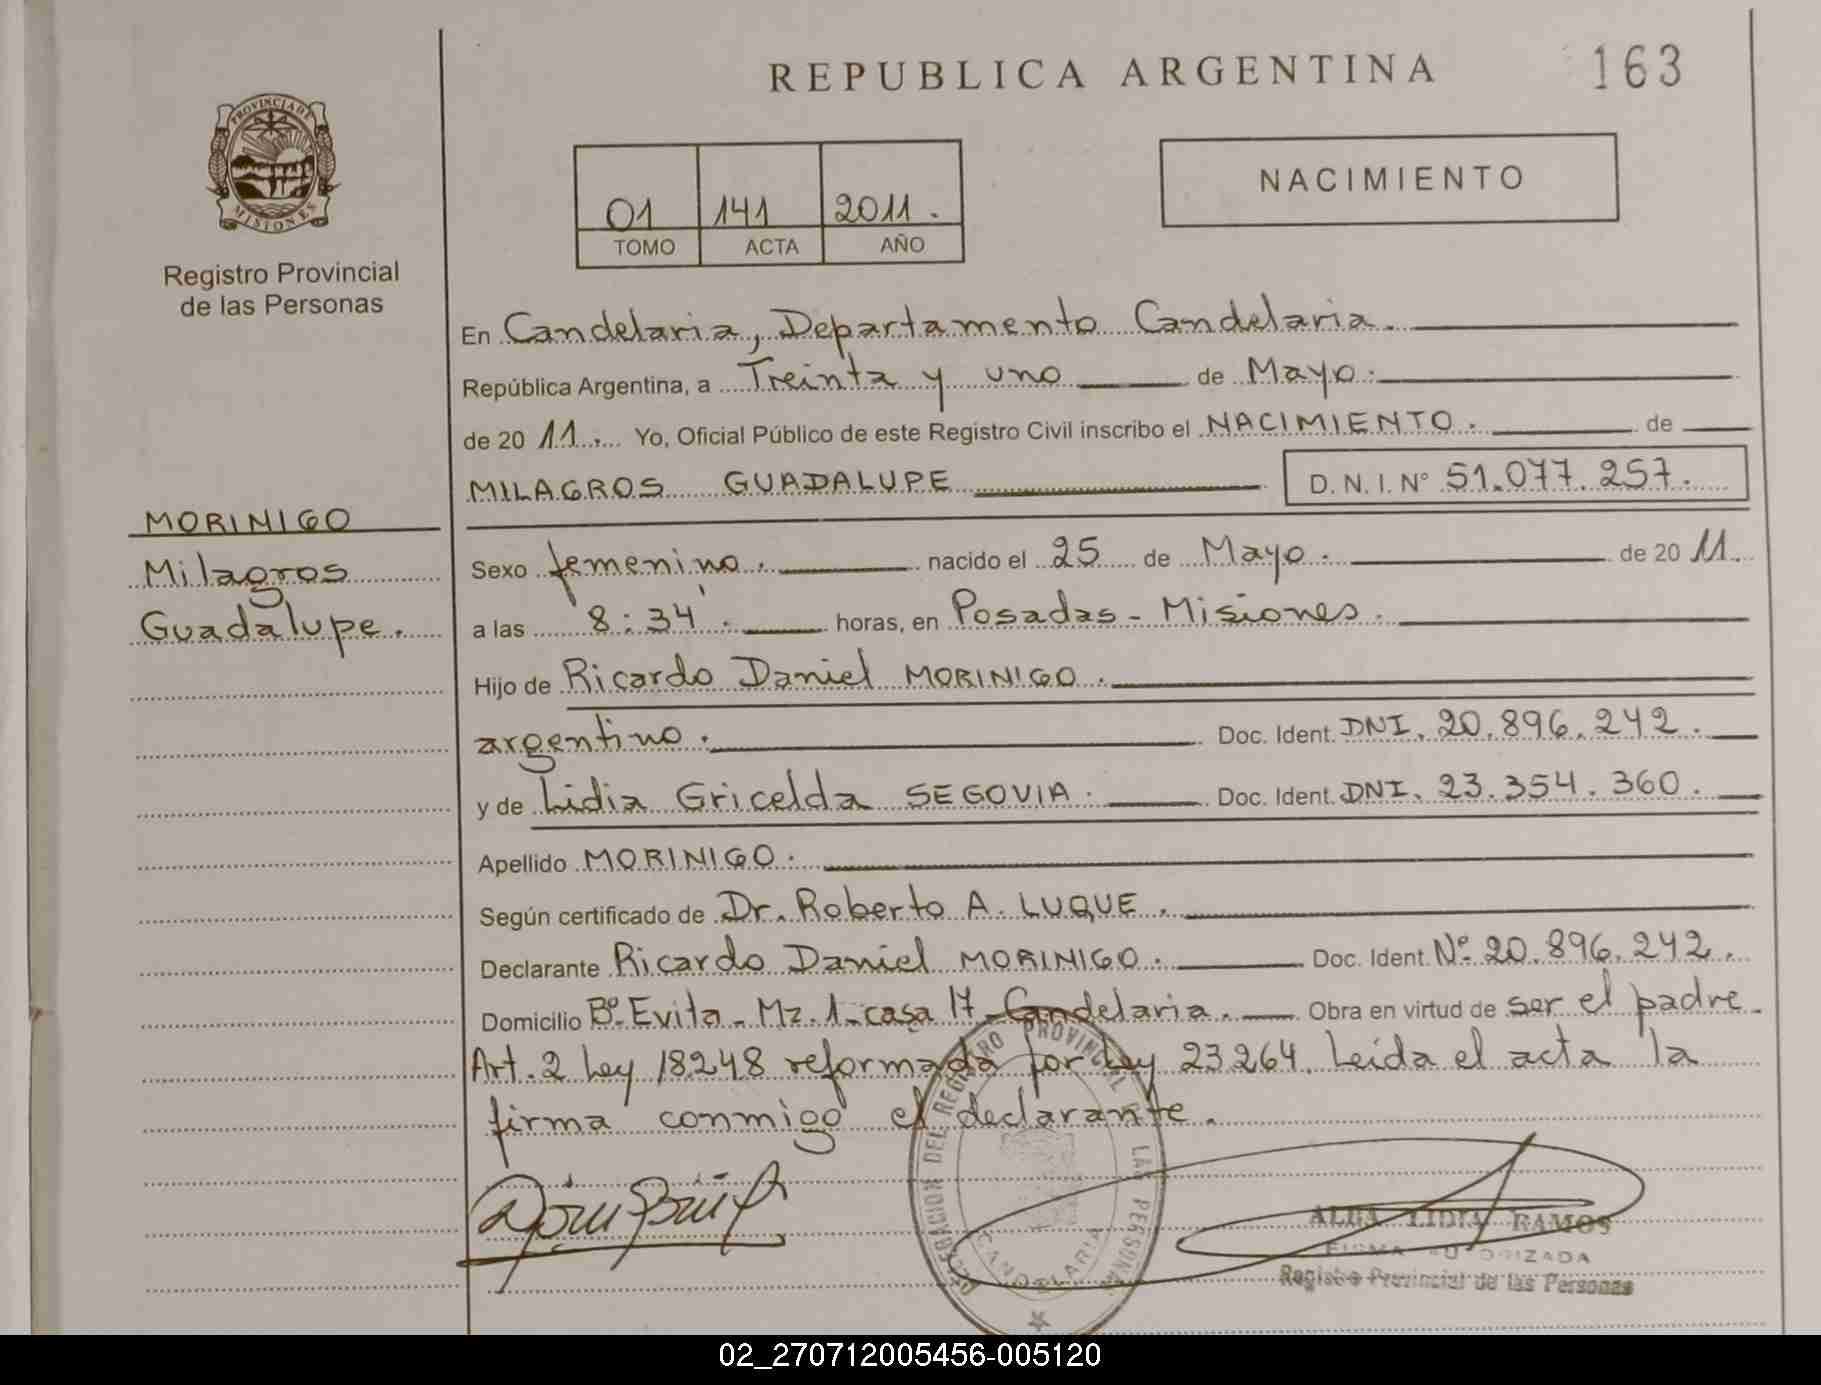 REPUBLICA ARGENTINA
163
PROVINCIA DE
MISIONES
Registro Provincial
de las Personas
01 141 2011.
TOMO ACTA AÑO
NACIMIENTO
En Candelaria, Departamento Candelaria.
República Argentina, a Treinta y uno de Mayo.
de 20 11. Yo, Oficial Público de este Registro Civil inscribo el NACIMIENTO. de
MILAGROS GUADALUPE D. N. I. N° 51.077.257.
MORINIGO
Milagros
Guadalupe.
Sexo femenino. nacido el 25 de Mayo. de 20 11.
a las 8:34. horas, en Posadas - Misiones.
Hijo de Ricardo Daniel MORINIGO.
argentino. Doc. Ident. DNI. 20.896.242.
y de Lidia Gricelda SEGOVIA. Doc. Ident. DNI. 23.354.360.
Apellido MORINIGO.
Según certificado de Dr. Roberto A. LUQUE.
Declarante Ricardo Daniel MORINIGO. Doc. Ident. Nº 20.896.242.
Domicilio Bº Evita - Mz. 1 - casa 17 - Candelaria. Obra en virtud de ser el padre.
Art. 2 Ley 18248 reformada por Ley 23264. Leída el acta la
firma conmigo el declarante.
DELEGACION DEL REGISTRO PROVINCIAL DE LAS PERSONAS
CANDELARIA
ALBA LIDIA RAMOS
FIRMA AUTORIZADA
Registro Provincial de las Personas
02_270712005456-005120